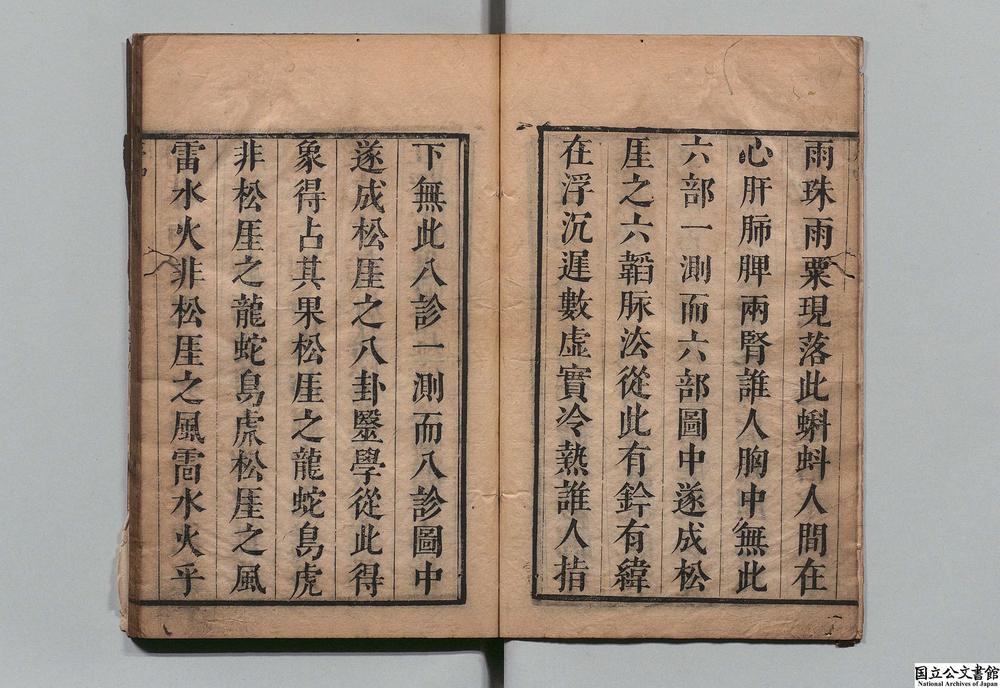 雨珠雨粟現落此蝌蚪人間在
心肝肺脾兩腎誰人胸中無此
六部一測而六部圖中遂成松
厓之六韜脉法從此有鈐有緯
在浮沉遲數虛實冷熱誰人指
下無此八診一測而八診圖中
遂成松厓之八卦毉學從此得
象得占其果松厓之龍蛇鳥虎
非松厓之龍蛇鳥虎松厓之風
雷水火非松厓之風雷水火乎
国立公文書館
National Archives of Japan